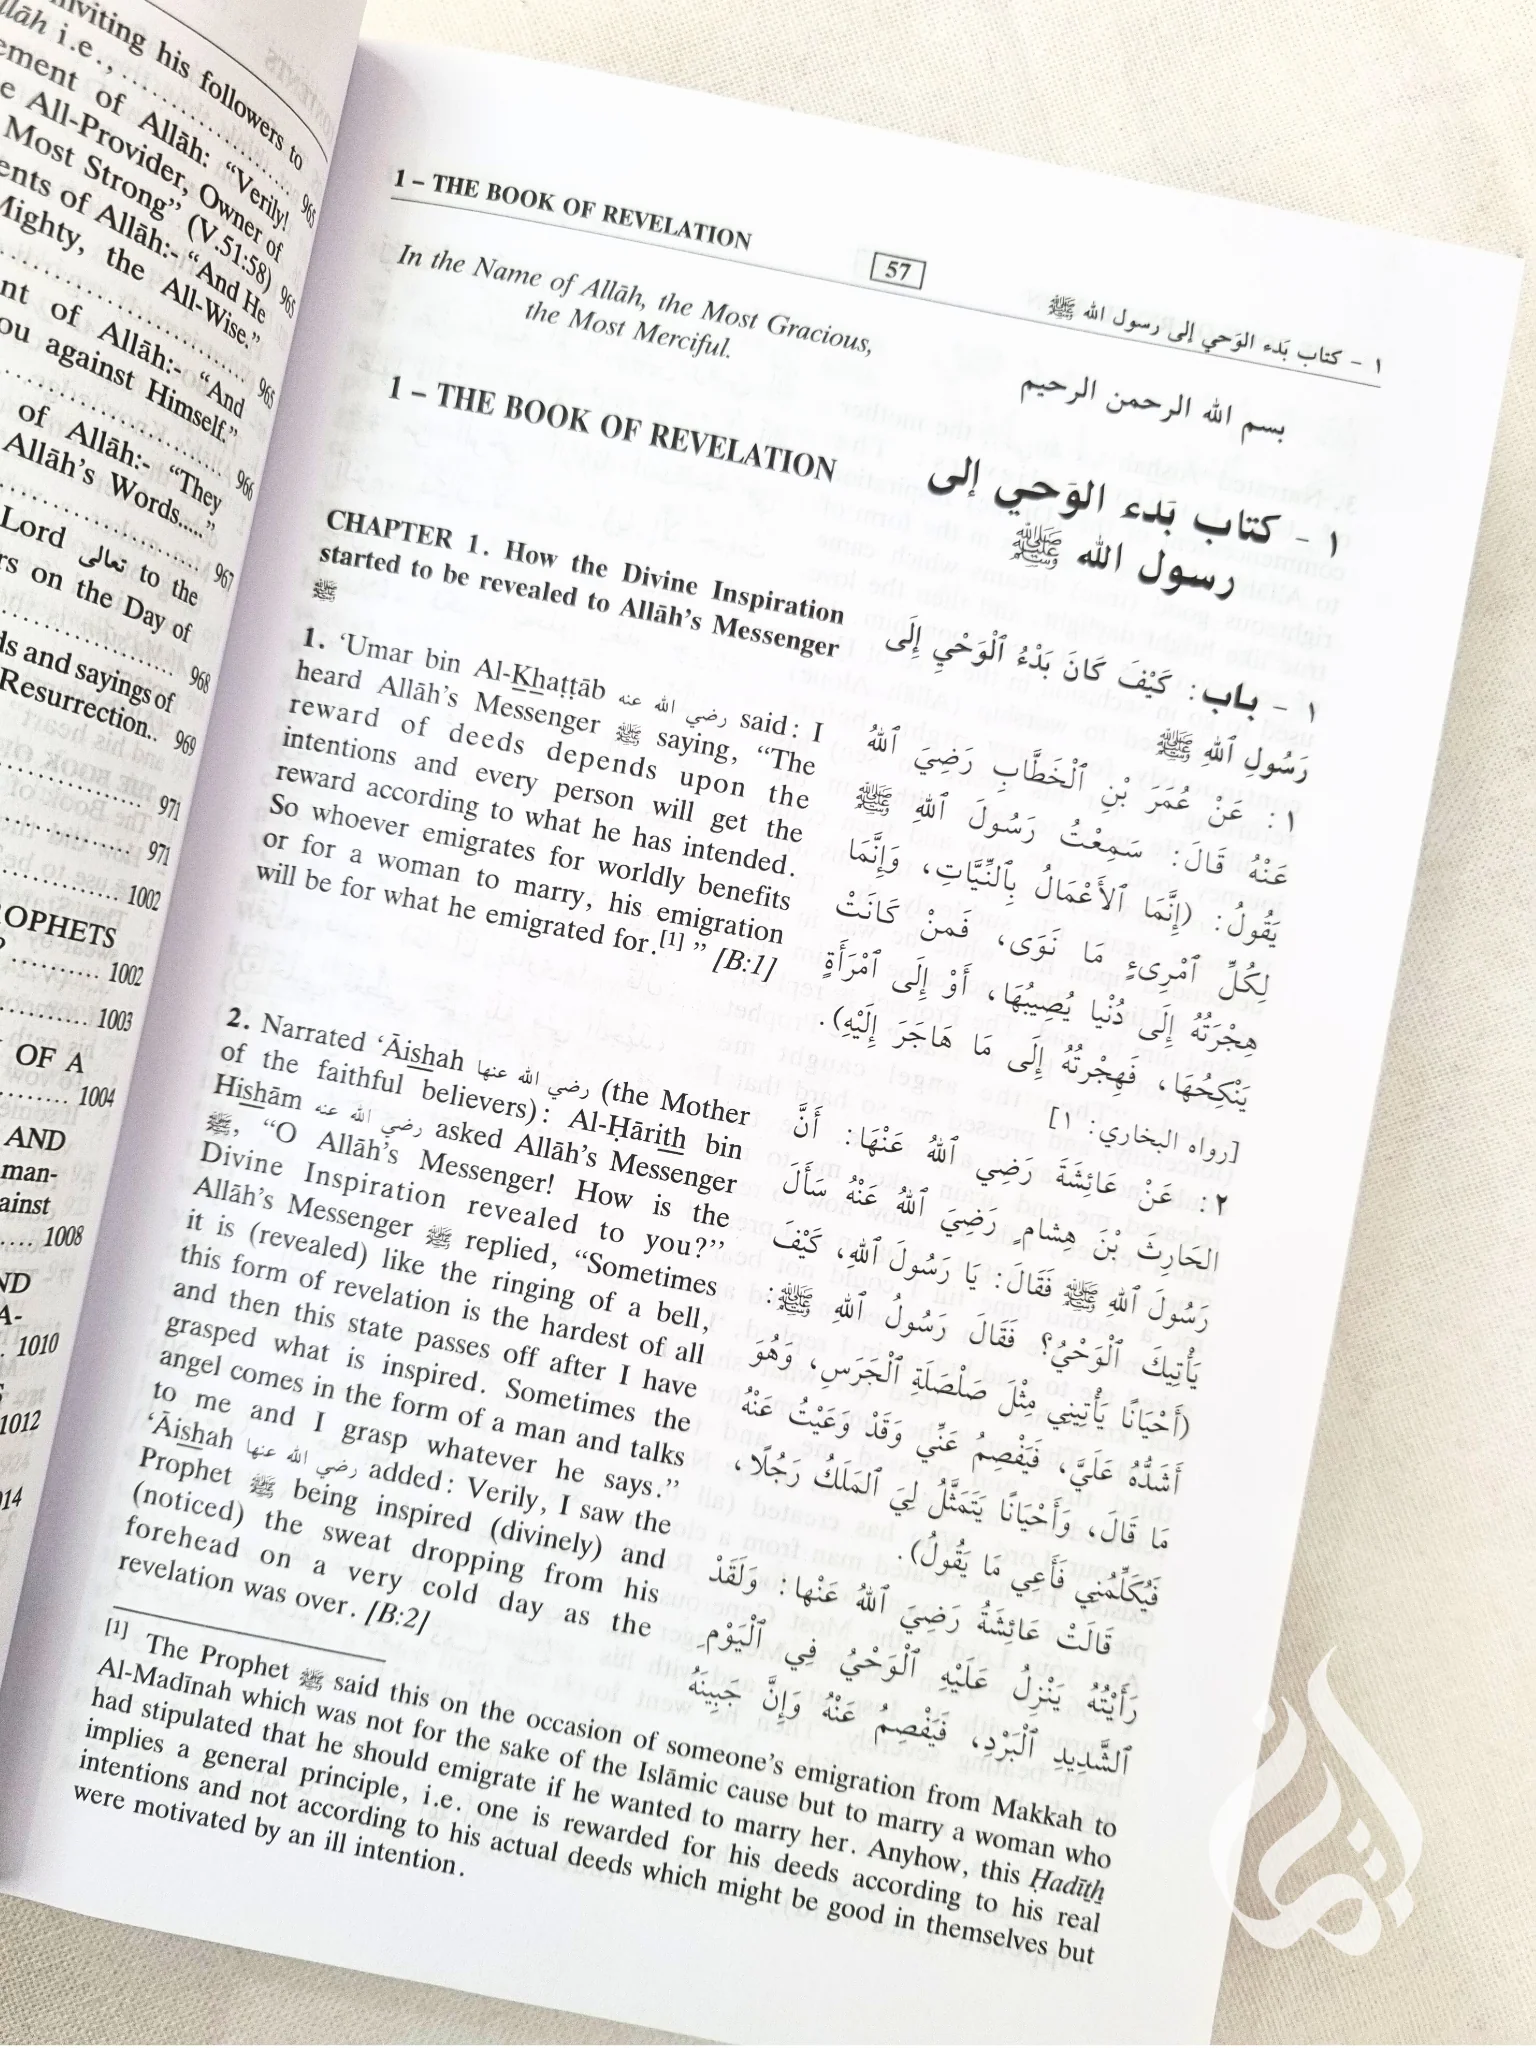 nviting his followers to
llāh i.e., ........................ 965
ement of Allāh: “Verily!
e All-Provider, Owner of
Most Strong” (V.51:58) 965
ents of Allāh:- “And He
Mighty, the All-Wise.”
........................ 965
nt of Allāh:- “And
ou against Himself.”
........................ 966
of Allāh:- “They
Allāh’s Words.....”
........................ 967
Lord تعالى to the
rs on the Day of
........................ 968
ds and sayings of
Resurrection.. 969
........................ 971
........................ 971
........................ 1002
ROPHETS
........................ 1002
........................ 1003
OF A
........................ 1004
AND
man-
ainst
..... 1008
ND
A-
.. 1010
1012
014
1 – THE BOOK OF REVELATION
57
١ - كتاب بَدء الوَحي إلى رسول الله ﷺ
In the Name of Allāh, the Most Gracious,
the Most Merciful.
بسم الله الرحمن الرحيم
1 – THE BOOK OF REVELATION
١ - كتاب بَدء الوَحي إلى
رسول الله ﷺ
CHAPTER 1. How the Divine Inspiration
started to be revealed to Allāh’s Messenger
ﷺ
1. ‘Umar bin Al-Khaṭṭāb رضي الله عنه said: I
heard Allāh’s Messenger ﷺ saying, “The
reward of deeds depends upon the
intentions and every person will get the
reward according to what he has intended.
So whoever emigrates for worldly benefits
or for a woman to marry, his emigration
will be for what he emigrated for.[1] ” [B:1]
2. Narrated ‘Āishah رضي الله عنها (the Mother
of the faithful believers): Al-Ḥārith bin
Hishām رضي الله عنه asked Allāh’s Messenger
ﷺ, “O Allāh’s Messenger! How is the
Divine Inspiration revealed to you?”
Allāh’s Messenger ﷺ replied, “Sometimes
it is (revealed) like the ringing of a bell,
this form of revelation is the hardest of all
and then this state passes off after I have
grasped what is inspired. Sometimes the
angel comes in the form of a man and talks
to me and I grasp whatever he says.”
‘Āishah رضي الله عنها added: Verily, I saw the
Prophet ﷺ being inspired (divinely) and
(noticed) the sweat dropping from his
forehead on a very cold day as the
revelation was over. [B:2]
١ - باب: كَيْفَ كَانَ بَدْءُ ٱلْوَحْيِ إِلَى
رَسُولِ ٱللهِ ﷺ
١: عَنْ عُمَرَ بْنِ ٱلْخَطَّابِ رَضِيَ ٱللهُ
عَنْهُ قَالَ: سَمِعْتُ رَسُولَ ٱللهِ ﷺ
يَقُولُ: (إِنَّمَا ٱلأَعْمَالُ بِٱلنِّيَّاتِ، وَإِنَّمَا
لِكُلِّ ٱمْرِىءٍ مَا نَوَى، فَمَنْ كَانَتْ
هِجْرَتُهُ إِلَى دُنْيا يُصِيبُهَا، أَوْ إِلَى ٱمْرَأَةٍ
يَنْكِحُهَا، فَهِجْرَتُهُ إِلَى مَا هَاجَرَ إِلَيْهِ).
[رواه البخاري: ١]
٢: عَنْ عَائِشَةَ رَضِي ٱللهُ عَنْهَا: أَنَّ
الحَارِثَ بْنَ هِشامٍ رَضِيَ ٱللهُ عَنْهُ سَأَلَ
رَسُولَ ٱللهِ ﷺ فَقَالَ: يَا رَسُولَ ٱللهِ، كَيْفَ
يَأْتِيكَ ٱلْوَحْيُ؟ فَقَالَ رَسُولُ ٱللهِ ﷺ:
(أَحْيَانًا يَأْتِينِي مِثْلَ صَلْصَلَةِ ٱلْجَرَسِ، وَهُوَ
أَشَدُّهُ عَلَيَّ، فَيَفْصِمُ عَنِّي وَقَدْ وَعَيْتُ عَنْهُ
مَا قَالَ، وَأَحْيَانًا يَتَمَثَّلُ لِيَ ٱلمَلَكُ رَجُلًا،
فَيُكَلِّمُنِي فَأَعِي مَا يَقُولُ).
قَالَتْ عَائِشَةُ رَضِيَ ٱللهُ عَنْها: وَلَقَدْ
رَأَيْتُهُ يَنْزِلُ عَلَيْهِ ٱلْوَحْيُ فِي ٱلْيَوْمِ
ٱلشَّدِيدِ ٱلْبَرْدِ، فَيَفْصِمُ عَنْهُ وَإِنَّ جَبِينَهُ
[1] The Prophet ﷺ said this on the occasion of someone’s emigration from Makkah to
Al-Madīnah which was not for the sake of the Islāmic cause but to marry a woman who
had stipulated that he should emigrate if he wanted to marry her. Anyhow, this Ḥadīth
implies a general principle, i.e. one is rewarded for his deeds according to his real
intentions and not according to his actual deeds which might be good in themselves but
were motivated by an ill intention.